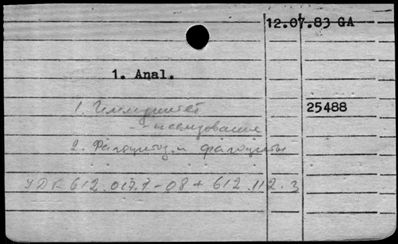 12.07.83 GA
1. Anal.
1. Иммунитет 25488
- исследование
2. Фагоцитоз и фагоциты
УДК 612.017.1-08 + 612.112.3